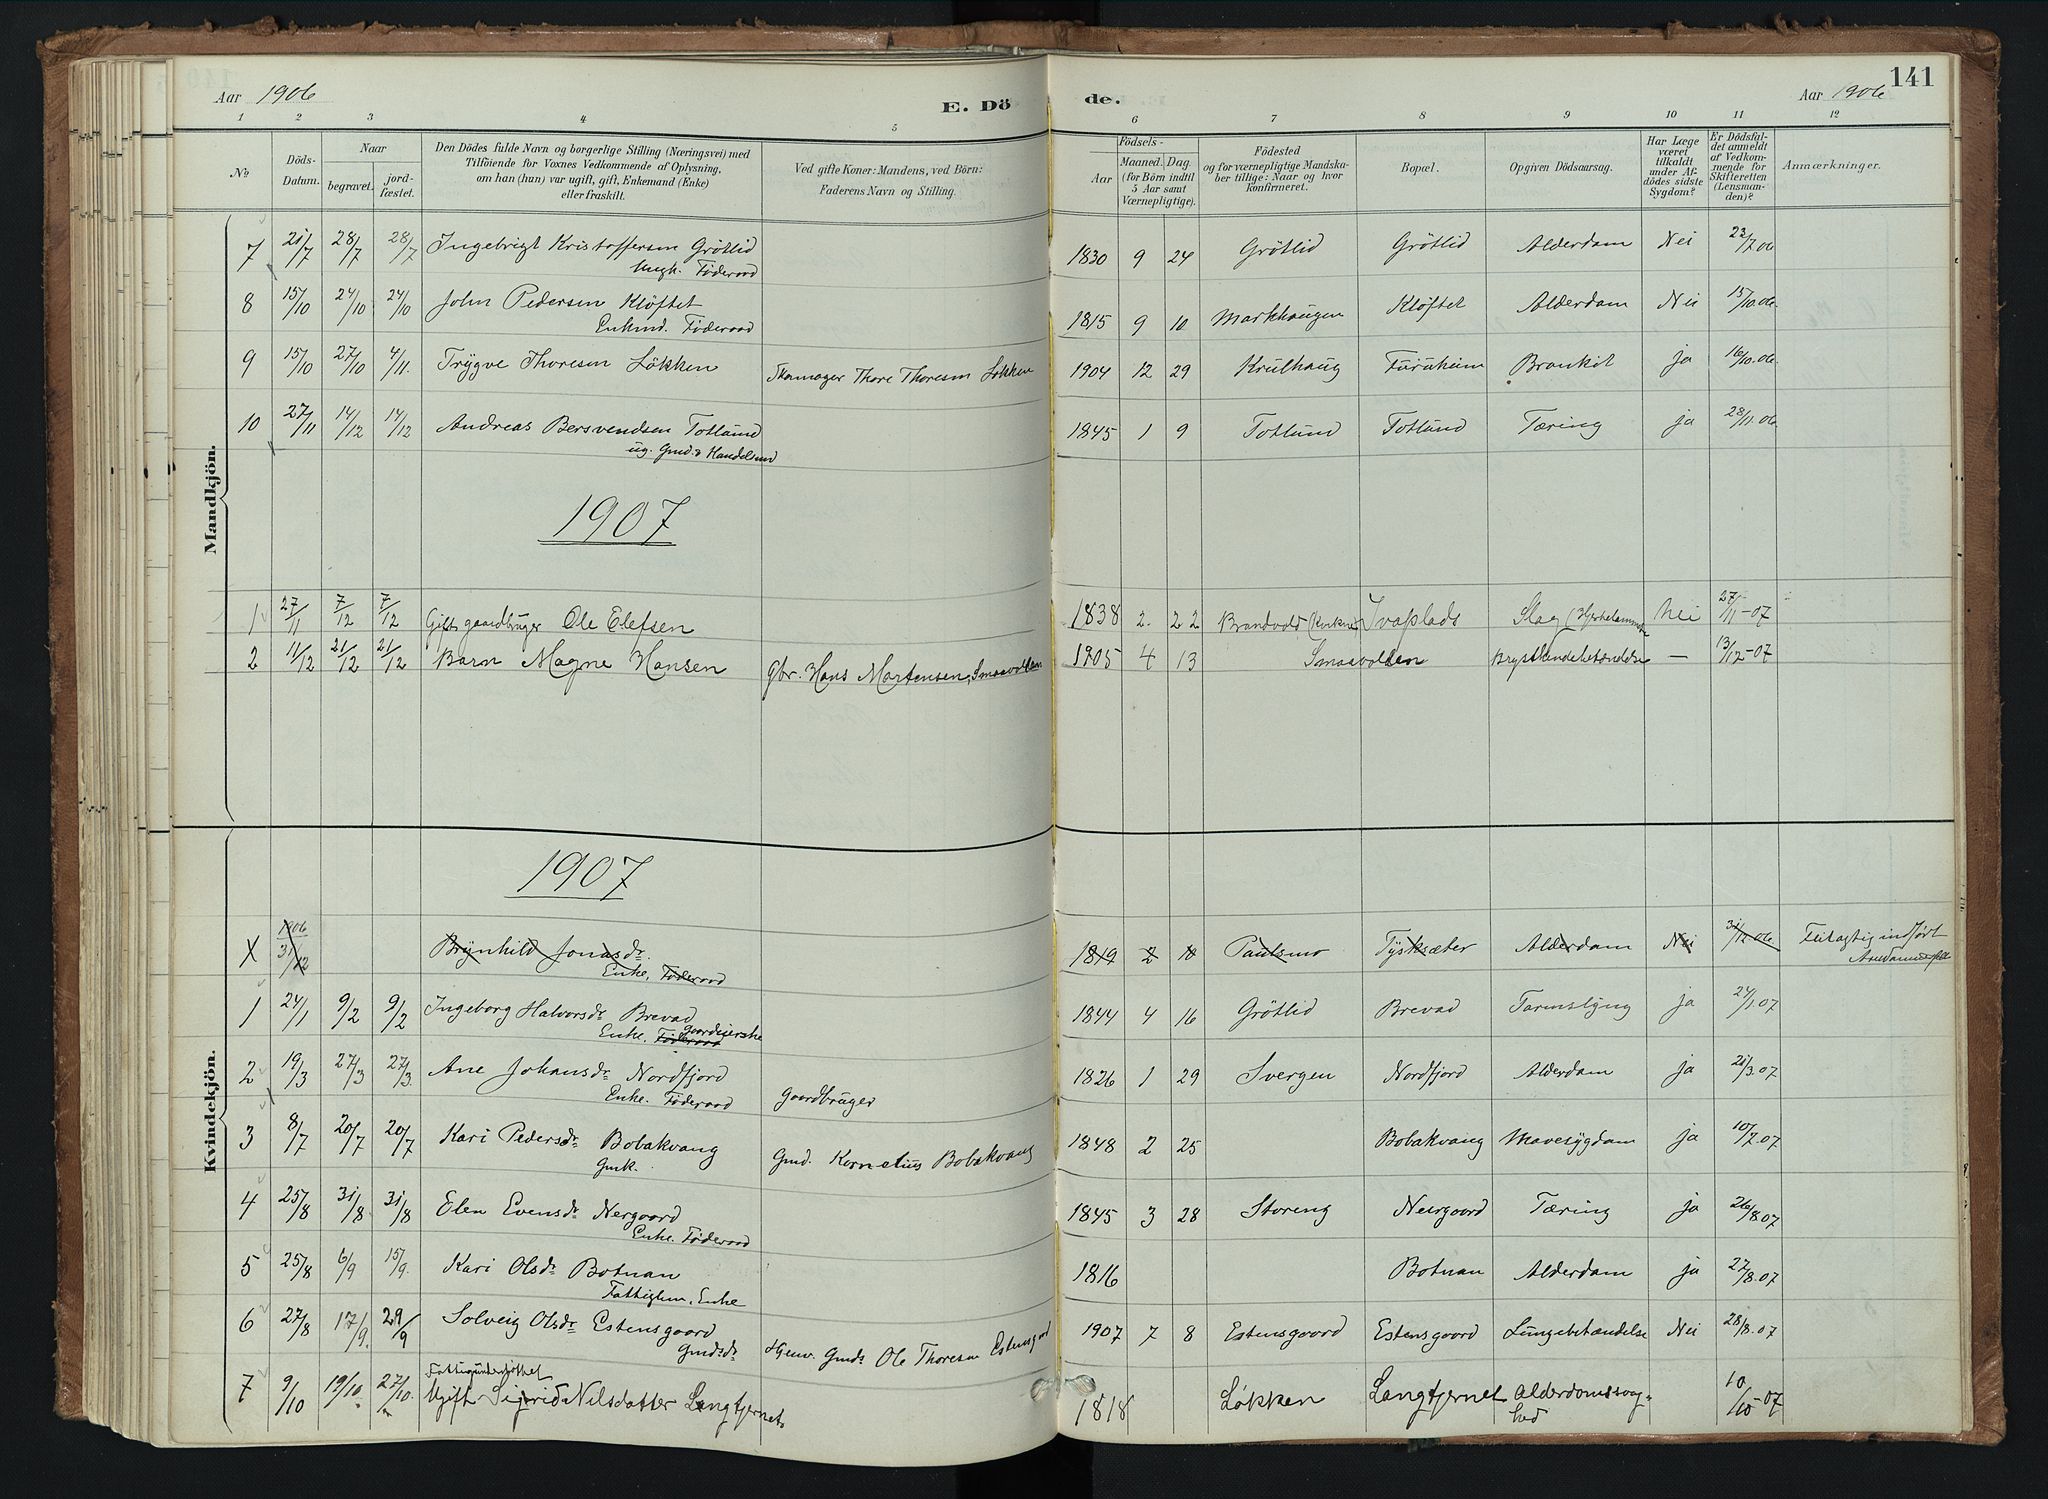 Aar 1906 E. Dö de. Aar 1906 141
1 2 3 4 5 6 7 8 9 10 11 12
No
Döds-Datum.
Naar
begravet.
jord-fæstet.
Den Dödes fulde Navn og borgerlige Stilling (Næringsvei) med
Tilföiende for Voxnes Vedkommende af Oplysning,
om han (hun) var ugift, gift, Enkemand (Enke)
eller fraskilt.
Ved gifte Koner: Mandens, ved Börn:
Faderens Navn og Stilling.
Födsels-
Aar
Maaned. Dag.
(for Börn indtil
5 Aar samt
Værnepligtige).
Födested
og for værnepligtige Mandska-
ber tillige: Naar og hvor
konfirmeret.
Bopæl.
Opgiven Dödsaarsag.
Har Læge
været
tilkaldt
under Af-
dödes sidste
Sygdom?
Er Dödsfal-
det anmeldt
af Vedkom-
mende for
Skifteretten
(Lensman-
den)?
Anmærkninger.
Mandkjön.
7 21/7 28/7 28/7 Ingebrigt Kristoffersen Grötlid 1830 9 24 Grötlid Grötlid Alderdom Nei 23/7.06
Ungk. Föderaad
8 15/10 24/10 24/10 John Pedersen Klöftet 1815 9 10 Markhaugen Klöftet Alderdom Nei 15/10.06.
Enkmd. Föderaad
9 15/10 27/10 4/11. Trygve Thoresen Lökken Skomager Thore Thoresen Lökken 1904 12 29 Krulhaug Furuheim Bronkit ja 16/10.06.
10 27/11 14/12 14/12 Andreas Bersvendsen Totlund 1845 1 9 Totlund Totlund Tæring ja 28/11.06.
ug. Gmd. & Handelsmd
1907
1 27/11 7/12 7/12 Gift gaardbruger Ole Elefsen 1838 2. 22 Brandvold Ivaplads Slag Nei 27/11-07
2 11/12 21/12 21/12 Barn Magne Hansen gbr. Hans Martensen, Smaavolden 1905 4 13 Smaavolden Brystbindebetændelse — 13/12-07
Kvindekjön.
1907
X 1906 31/12 Brynhild Jonasdr. 1819 2 18 Paulsmo Tysksæter Alderdom Nei 31/12.06. Feilagtig indført
Enke, Föderaad
1 24/1 9/2 9/2 Ingeborg Halvorsdr Brevad 1844 4 16 Grötlid Brevad Tarmslyng ja 24/1.07
Enke. Föderaad Gaardeierske
2 19/3 27/3 27/3. Ane Johansdr Nordfjord Gaardbruger 1826 1 29 Svergen Nordfjord Alderdom ja 21/3.07
Enke. Föderaad
3 8/7 20/7 20/7 Kari Pedersdr Bobakvang Gmd. Kornelius Bobakvang 1848 2 25 Bobakvang Mavesygdom ja 10/7.07
Gmk.
4 25/8 31/8 31/8 Elen Evensdr Nergaard 1845 3 28 Storeng Nergaard Tæring ja 26/8.07
Enke. Föderaad
5 25/8 6/9 15/9. Kari Olsdr Botnan 1816 Botnan Alderdom ja 27/8.07
Fattiglem, Enke
6 27/8 17/9. 29/9 Solveig Olsdr Estensgaard Gmds Ole Thoresen Estensgaard 1907 7 8 Estensgaard Estensgaard Lungebetændelse Nei 28/8.07
Gmdsdr
Fattigunderstöttet
7 9/10 19/10. 27/10. Ugift Sigrid Nilsdatter Langtjernet 1818 Løkken Langtjernet Alderdomssvag- 10/10-07
hed